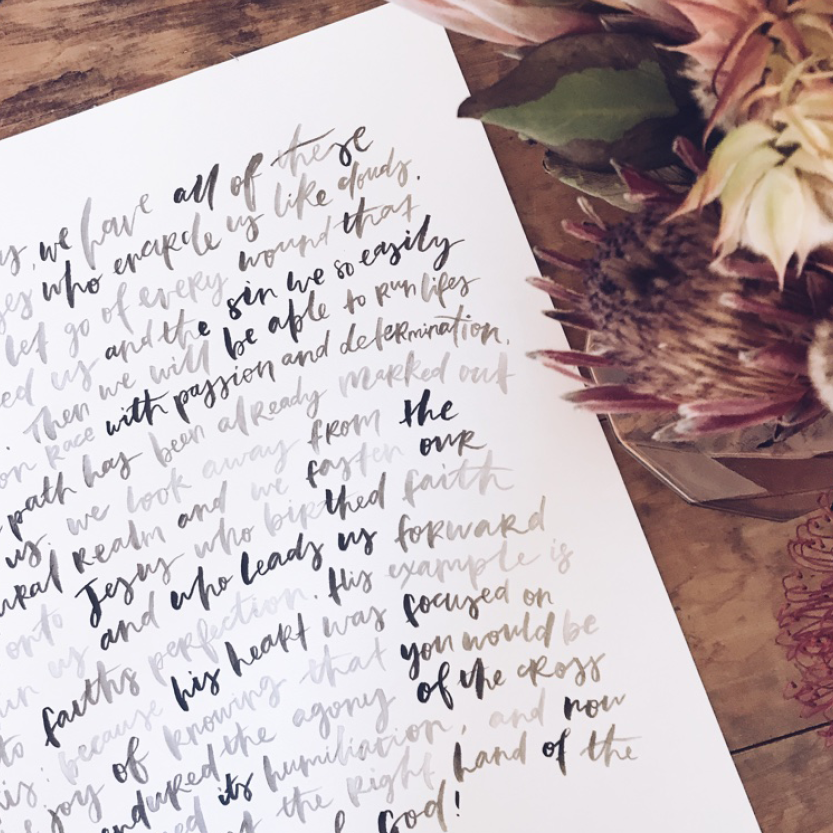 we have all of these
ses who encircle us like clouds.
let go of every wound that
ed us and the sin we so easily
Then we will be able to run lifes
on race with passion and determination,
path has been already marked out
us. we look away from the
ural realm and we fasten our
onto Jesus who birthed faith
us and who leads us forward
to faiths perfection. His example is
is: because his heart was focused on
joy of knowing that you would be
endured the agony of the cross
its humiliation, and now
the right hand of the
God!